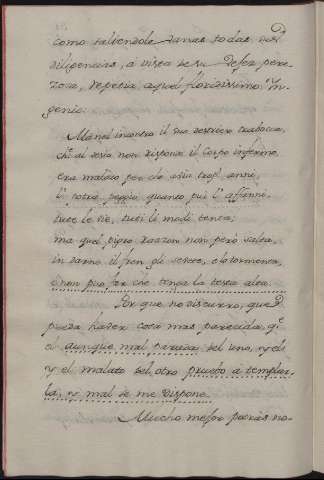 como saliendole vanas todas sus
diligencias, a vista de su Defor pere-
zosa, repetia aquel floridissimo In-
genio:
Ma nel incontro il suo destriero trabocca,
ch' al desio non risponde il corpo infermo.
era malato per che avia trop' anni,
l' potra peggio quanto piu l' affanni.
tute le vie, tuti li modi tenta;
ma quel pigro rozzon non pero salta,
in darno il fren gli scuote, e lo tormenta,
e non puo far che tenga la testa alta.
Por que no discurro, que
pueda haver cosa mas parecida, q.e
el aunque mal parada del uno, y el
y el malato del otro pruebo a templar-
la, y mal se me dispone.
Mucho mejor podràs no-